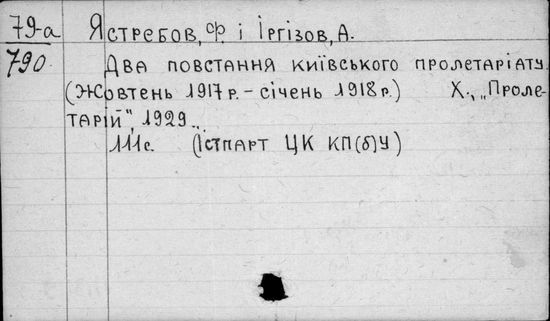 79-а Ястребов, Ф. і Іргізов, А.
790. Два повстання київського пролетаріату.
(Жовтень 1917 р. – січень 1918 р.) Х., „Проле-
тарій", 1929..
111 с. (Істпарт ЦК КП(б)У)